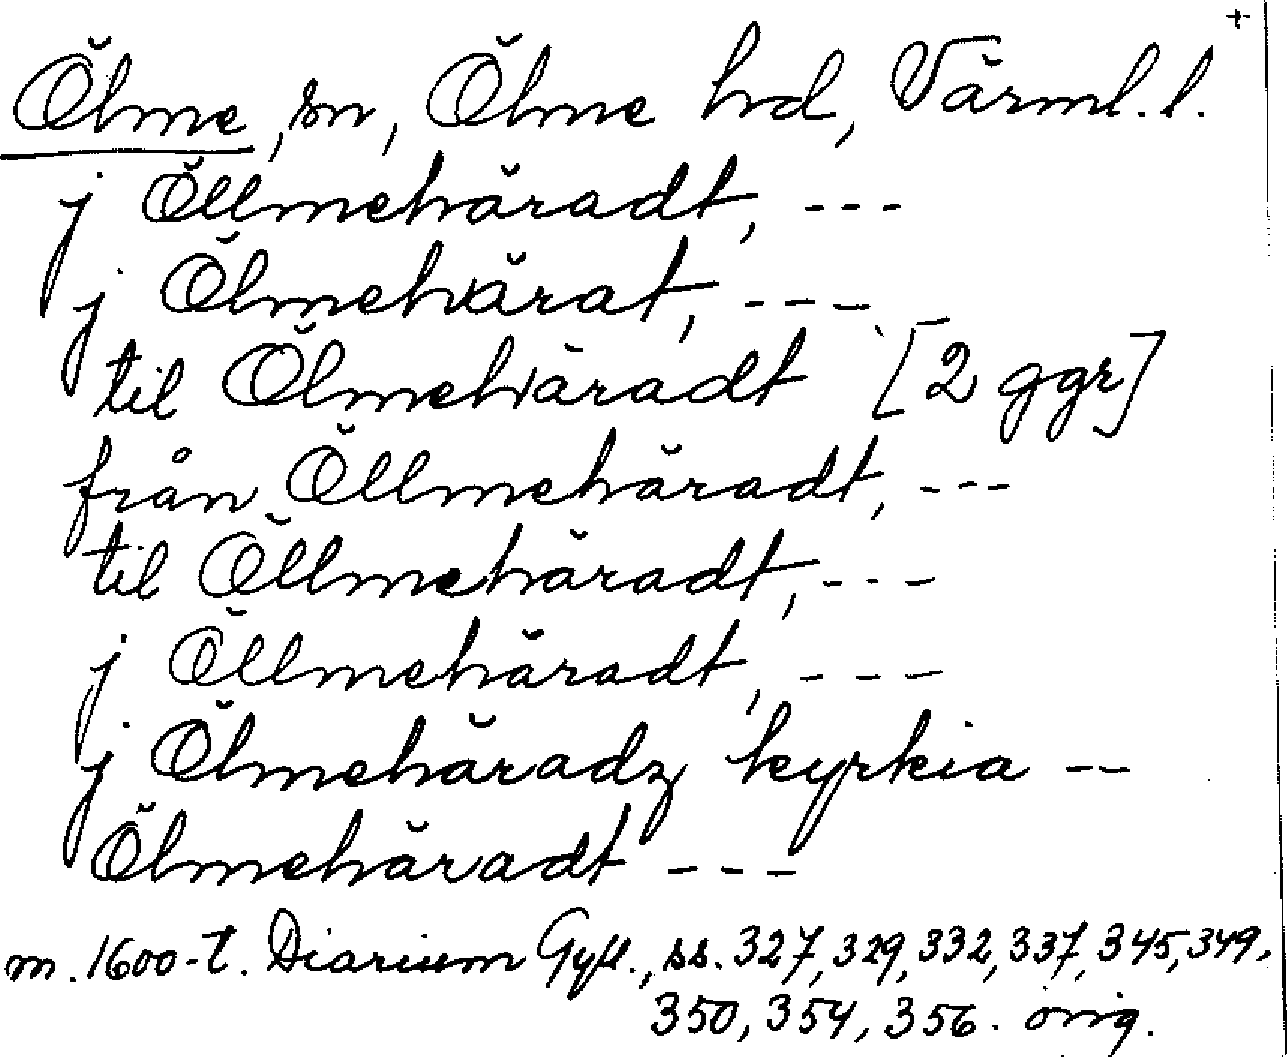 +
Ölme, sn, Ölme hd, Värml. l.
j Öllmehäradt, ---
j Ölmehärat, ---
til Ölmehäradt [2 ggr]
från Öllmehäradt, ---
til Öllmehäradt, ---
j Öllmehäradt, ---
j Ölmehäradz kyrkia --
Ölmehäradt ---
m. 1600-t. Diarium Gyll., ss. 327, 329, 332, 337, 345, 349,
350, 354, 356. orig.